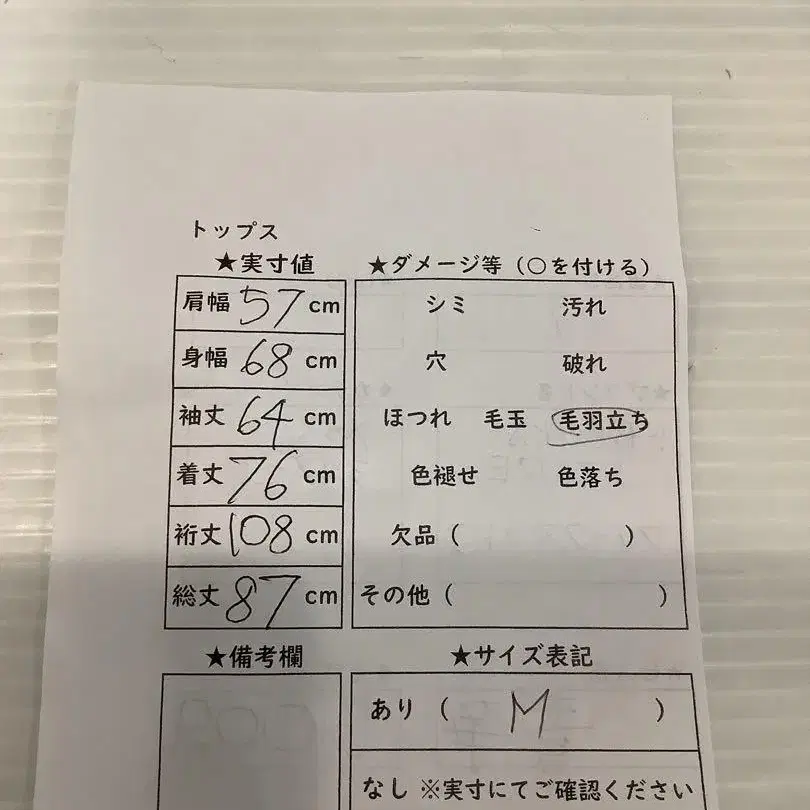 トップス
★実寸値
肩幅 57 cm
身幅 68 cm
袖丈 64 cm
着丈 76 cm
裄丈 108 cm
総丈 87 cm
★ダメージ等（○を付ける）
シミ 汚れ
穴 破れ
ほつれ 毛玉 毛羽立ち
色褪せ 色落ち
欠品（ ）
その他（ ）
★備考欄
★サイズ表記
あり（ M ）
なし ※実寸にてご確認ください